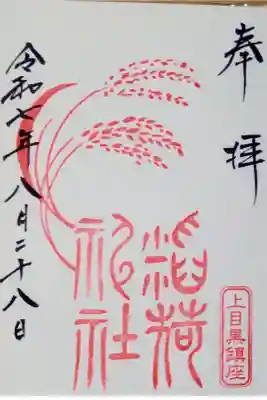 奉拝
稲荷
神社
上目黒鎮座
令和七年八月二十八日